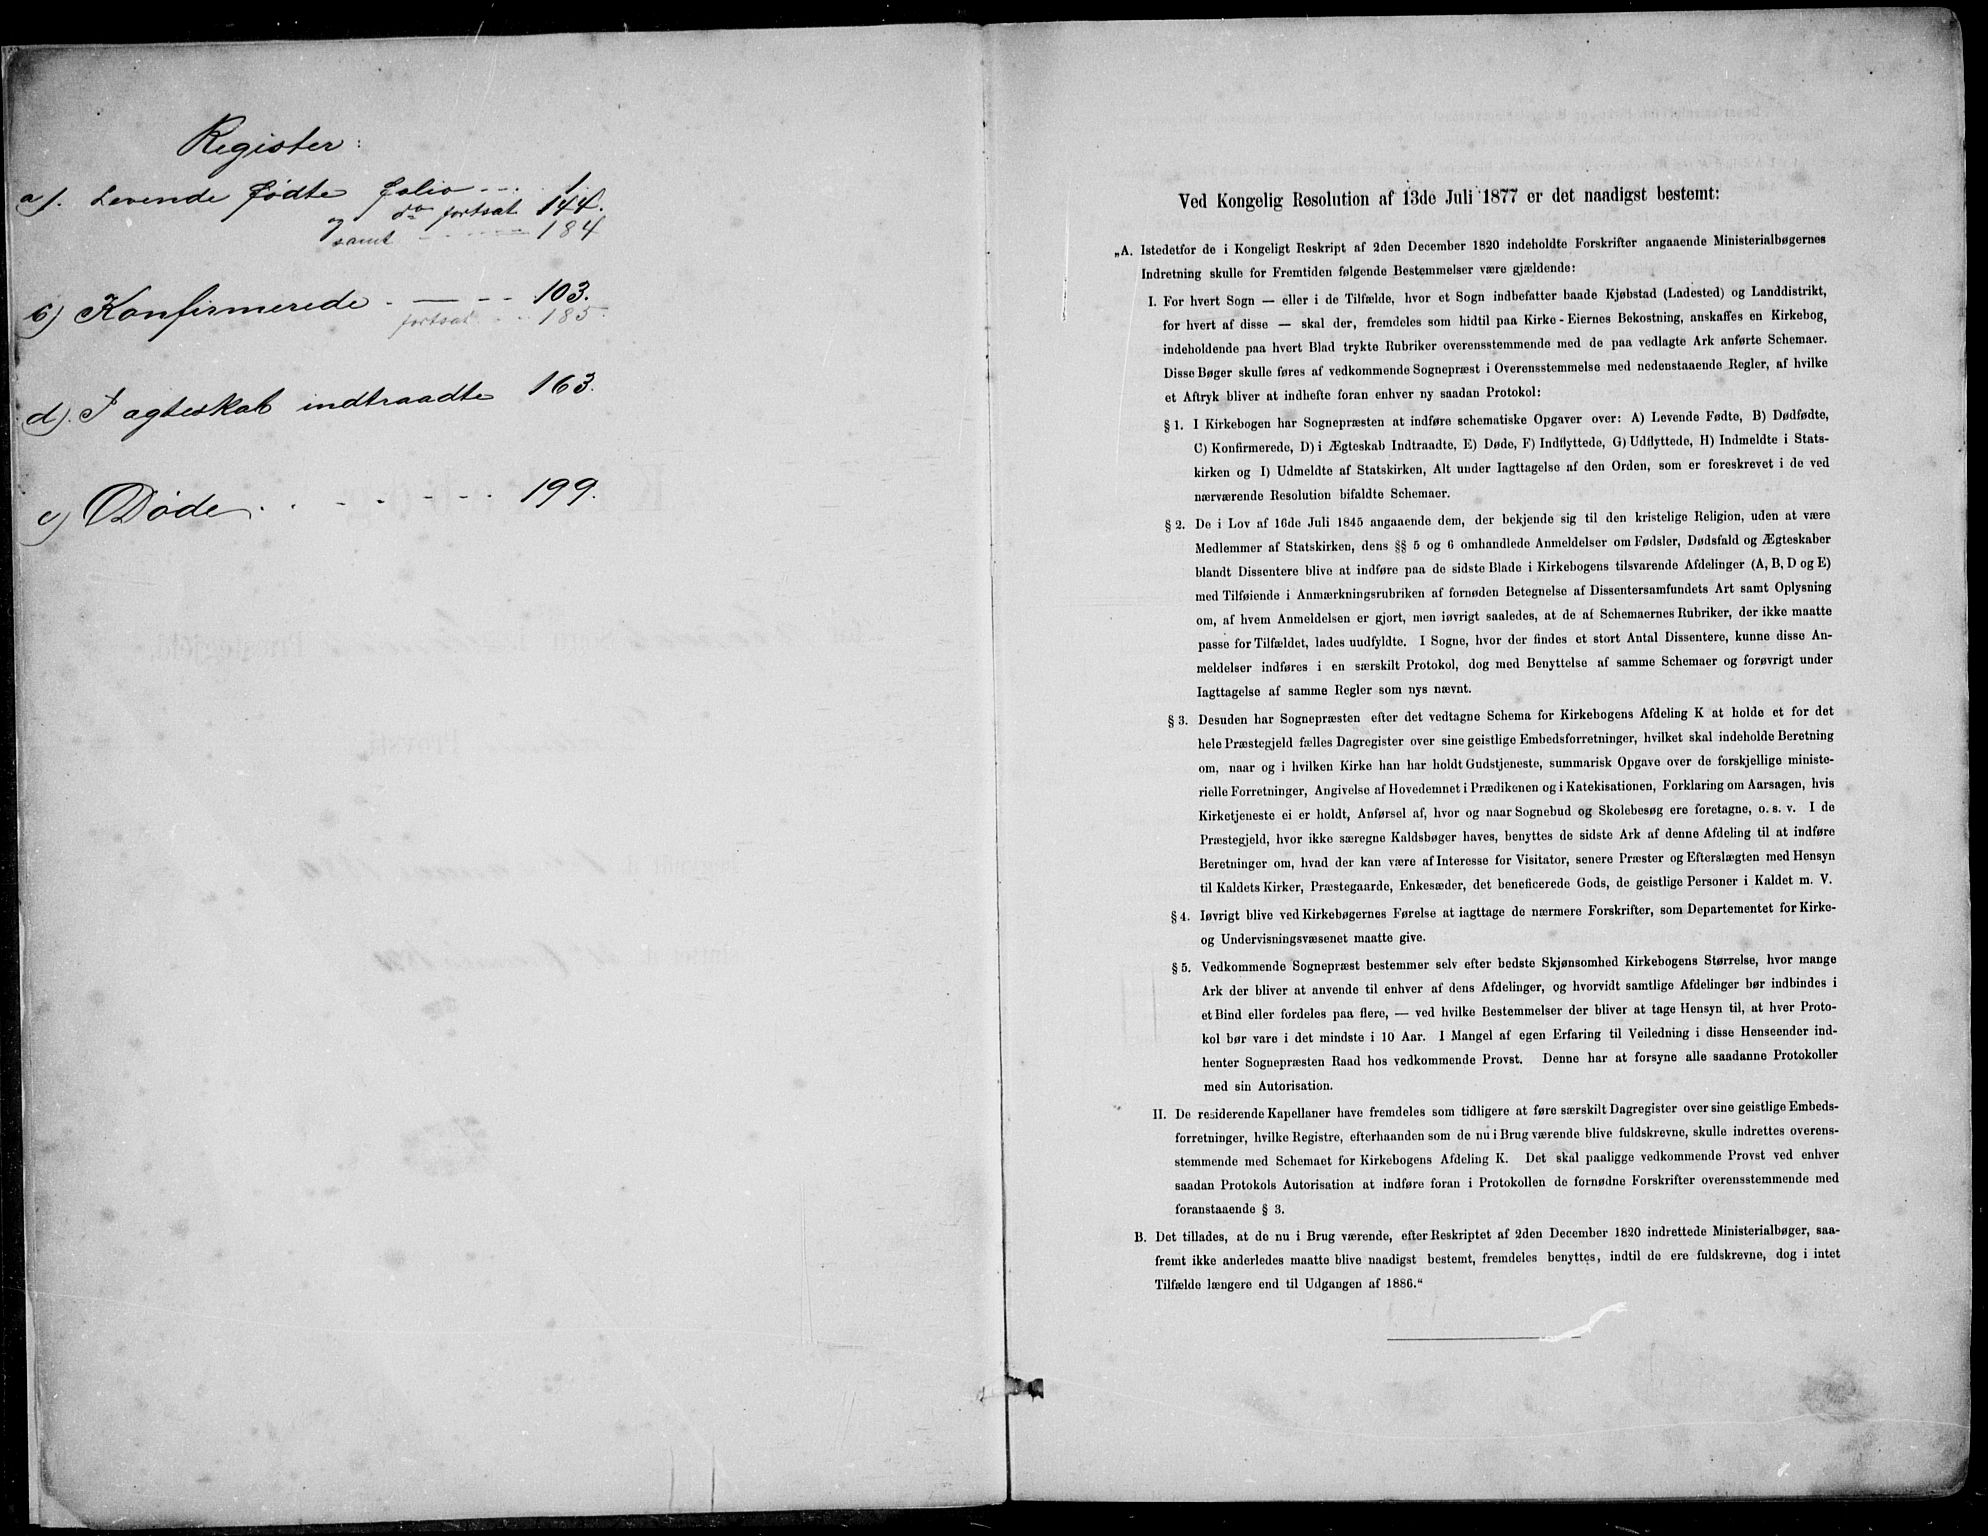 Register:
a). Levende fødte folio - - . 1
og do fortsat 144.
samt - - - - - - 184
b) Konfirmerede - — - - 103.
fortsat - . . 185.
d). I ægteskab indtraadte 163.
e) Døde . . - . - - - . 199.
Ved Kongelig Resolution af 13de Juli 1877 er det naadigst bestemt:
„A. Istedetfor de i Kongeligt Reskript af 2den December 1820 indeholdte Forskrifter angaaende Ministerialbøgernes
Indretning skulle for Fremtiden følgende Bestemmelser være gjældende:
I. For hvert Sogn — eller i de Tilfælde, hvor et Sogn indbefatter baade Kjøbstad (Ladested) og Landdistrikt,
for hvert af disse — skal der, fremdeles som hidtil paa Kirke-Eiernes Bekostning, anskaffes en Kirkebog,
indeholdende paa hvert Blad trykte Rubriker overensstemmende med de paa vedlagte Ark anførte Schemaer.
Disse Bøger skulle føres af vedkommende Sognepræst i Overensstemmelse med nedenstaaende Regler, af hvilke
et Aftryk bliver at indhefte foran enhver ny saadan Protokol:
§ 1. I Kirkebogen har Sognepræsten at indføre schematiske Opgaver over: A) Levende Fødte, B) Dødfødte,
C) Konfirmerede, D) i Ægteskab Indtraadte, E) Døde, F) Indflyttede, G) Udflyttede, H) Indmeldte i Stats-
kirken og I) Udmeldte af Statskirken, Alt under Iagttagelse af den Orden, som er foreskrevet i de ved
nærværende Resolution bifaldte Schemaer.
§ 2. De i Lov af 16de Juli 1845 angaaende dem, der bekjende sig til den kristelige Religion, uden at være
Medlemmer af Statskirken, dens §§ 5 og 6 omhandlede Anmeldelser om Fødsler, Dødsfald og Ægteskaber
blandt Dissentere blive at indføre paa de sidste Blade i Kirkebogens tilsvarende Afdelinger (A, B, D og E)
med Tilføiende i Anmærkningsrubriken af fornøden Betegnelse af Dissentersamfundets Art samt Oplysning
om, af hvem Anmeldelsen er gjort, men iøvrigt saaledes, at de af Schemaernes Rubriker, der ikke maatte
passe for Tilfældet, lades uudfyldte. I Sogne, hvor der findes et stort Antal Dissentere, kunne disse An-
meldelser indføres i en særskilt Protokol, dog med Benyttelse af samme Schemaer og forøvrigt under
Iagttagelse af samme Regler som nys nævnt.
§ 3. Desuden har Sognepræsten efter det vedtagne Schema for Kirkebogens Afdeling K at holde et for det
hele Præstegjeld fælles Dagregister over sine geistlige Embedsforretninger, hvilket skal indeholde Beretning
om, naar og i hvilken Kirke han har holdt Gudstjeneste, summarisk Opgave over de forskjellige ministe-
rielle Forretninger, Angivelse af Hovedemnet i Prædikenen og i Katekisationen, Forklaring om Aarsagen, hvis
Kirketjeneste ei er holdt, Anførsel af, hvor og naar Sognebud og Skolebesøg ere foretagne, o. s. v. I de
Præstegjeld, hvor ikke særegne Kaldsbøger haves, benyttes de sidste Ark af denne Afdeling til at indføre
Beretninger om, hvad der kan være af Interesse for Visitator, senere Præster og Efterslægten med Hensyn
til Kaldets Kirker, Præstegaarde, Enkesæder, det beneficerede Gods, de geistlige Personer i Kaldet m. V.
§ 4. Iøvrigt blive ved Kirkebøgernes Førelse at iagttage de nærmere Forskrifter, som Departementet for Kirke-
og Undervisningsvæsenet maatte give.
§ 5. Vedkommende Sognepræst bestemmer selv efter bedste Skjønsomhed Kirkebogens Størrelse, hvor mange
Ark der bliver at anvende til enhver af dens Afdelinger, og hvorvidt samtlige Afdelinger bør indbindes i
et Bind eller fordeles paa flere, — ved hvilke Bestemmelser der bliver at tage Hensyn til, at hver Proto-
kol bør vare i det mindste i 10 Aar. I Mangel af egen Erfaring til Veiledning i disse Henseender ind-
henter Sognepræsten Raad hos vedkommende Provst. Denne har at forsyne alle saadanne Protokoller
med sin Autorisation.
II. De residerende Kapellaner have fremdeles som tidligere at føre særskilt Dagregister over sine geistlige Embeds-
forretninger, hvilke Registre, efterhaanden som de nu i Brug værende blive fuldskrevne, skulle indrettes overens-
stemmende med Schemaet for Kirkebogens Afdeling K. Det skal paaligge vedkommende Provst ved enhver
saadan Protokols Autorisation at indføre foran i Protokollen de fornødne Forskrifter overensstemmende med
foranstaaende § 3.
B. Det tillades, at de nu i Brug værende, efter Reskriptet af 2den December 1820 indrettede Ministerialbøger, saa-
fremt ikke anderledes maatte blive naadigst bestemt, fremdeles benyttes, indtil de ere fuldskrevne, dog i intet
Tilfælde længere end til Udgangen af 1886.“